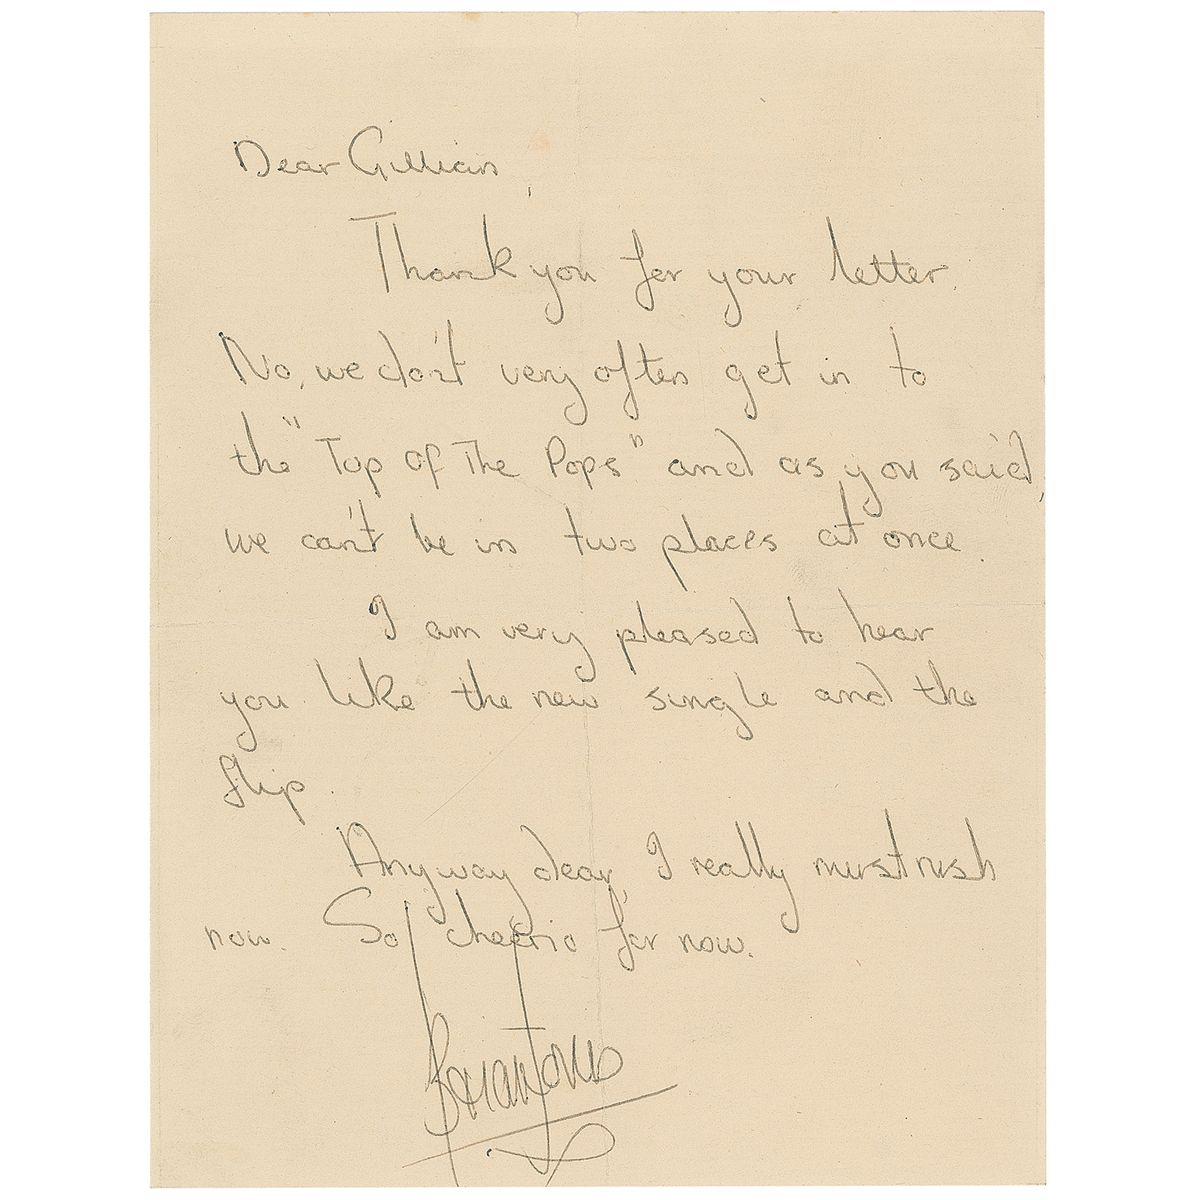 Dear Gillian,
Thank you for your letter.
No, we don't very often get in to
the "Top of The Pops" and as you said,
we can't be in two places at once.
I am very pleased to hear
you like the new single and the
flip.
Anyway dear, I really must rush
now. So cheerio for now.
Brian Jones